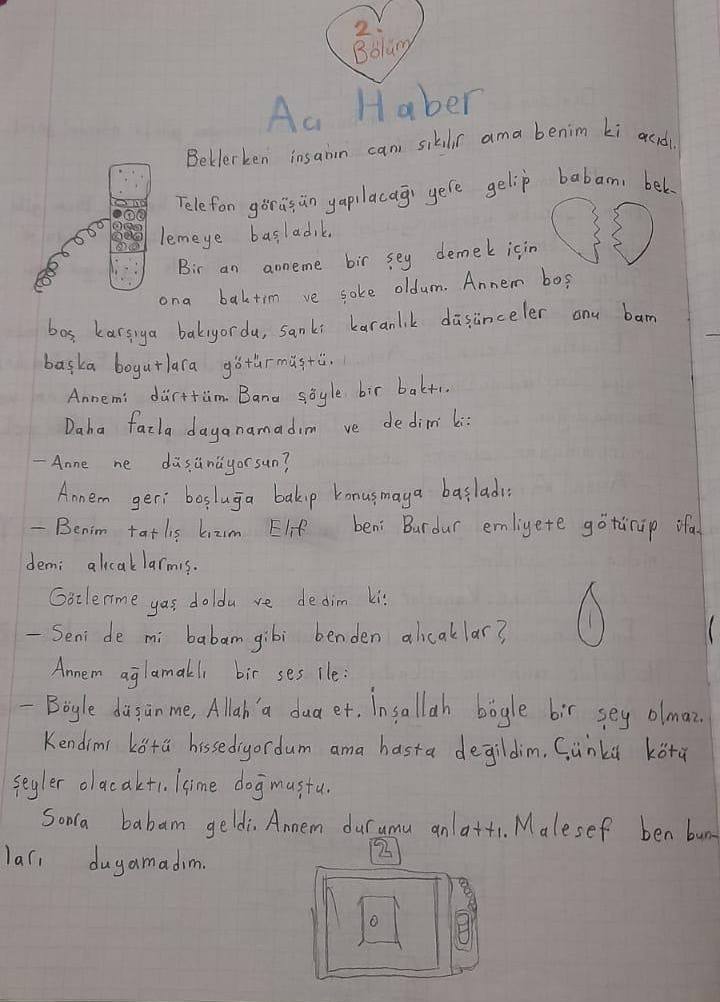 2.
Bölüm
Acı Haber
Beklerken insanın canı sıkılır ama benim ki acıdı.
Telefon görüşün yapılacağı yere gelip babamı bek-
lemeye başladık.
Bir an anneme bir şey demek için
ona baktım ve şoke oldum. Annem boş
boş karşıya bakıyordu, sanki karanlık düşünceler onu bam
başka boyutlara götürmüştü.
Annemi dürttüm. Bana şöyle bir baktı.
Daha fazla dayanamadım ve dedim ki:
- Anne ne düşünüyorsun?
Annem geri boşluğa bakıp konuşmaya başladı:
- Benim tatlış kızım Elif beni Burdur emliyete götürüp ifa-
demi alıcaklarmış.
Gözlerime yaş doldu ve dedim ki:
- Seni de mi babam gibi benden alıcaklar?
Annem ağlamaklı bir ses ile:
- Böyle düşünme, Allah'a dua et. İnşallah böyle bir şey olmaz.
Kendimi kötü hissediyordum ama hasta değildim. Çünkü kötü
şeyler olacaktı. İçime doğmuştu.
Sonra babam geldi. Annem durumu anlattı. Malesef ben bun-
ları duyamadım.
2